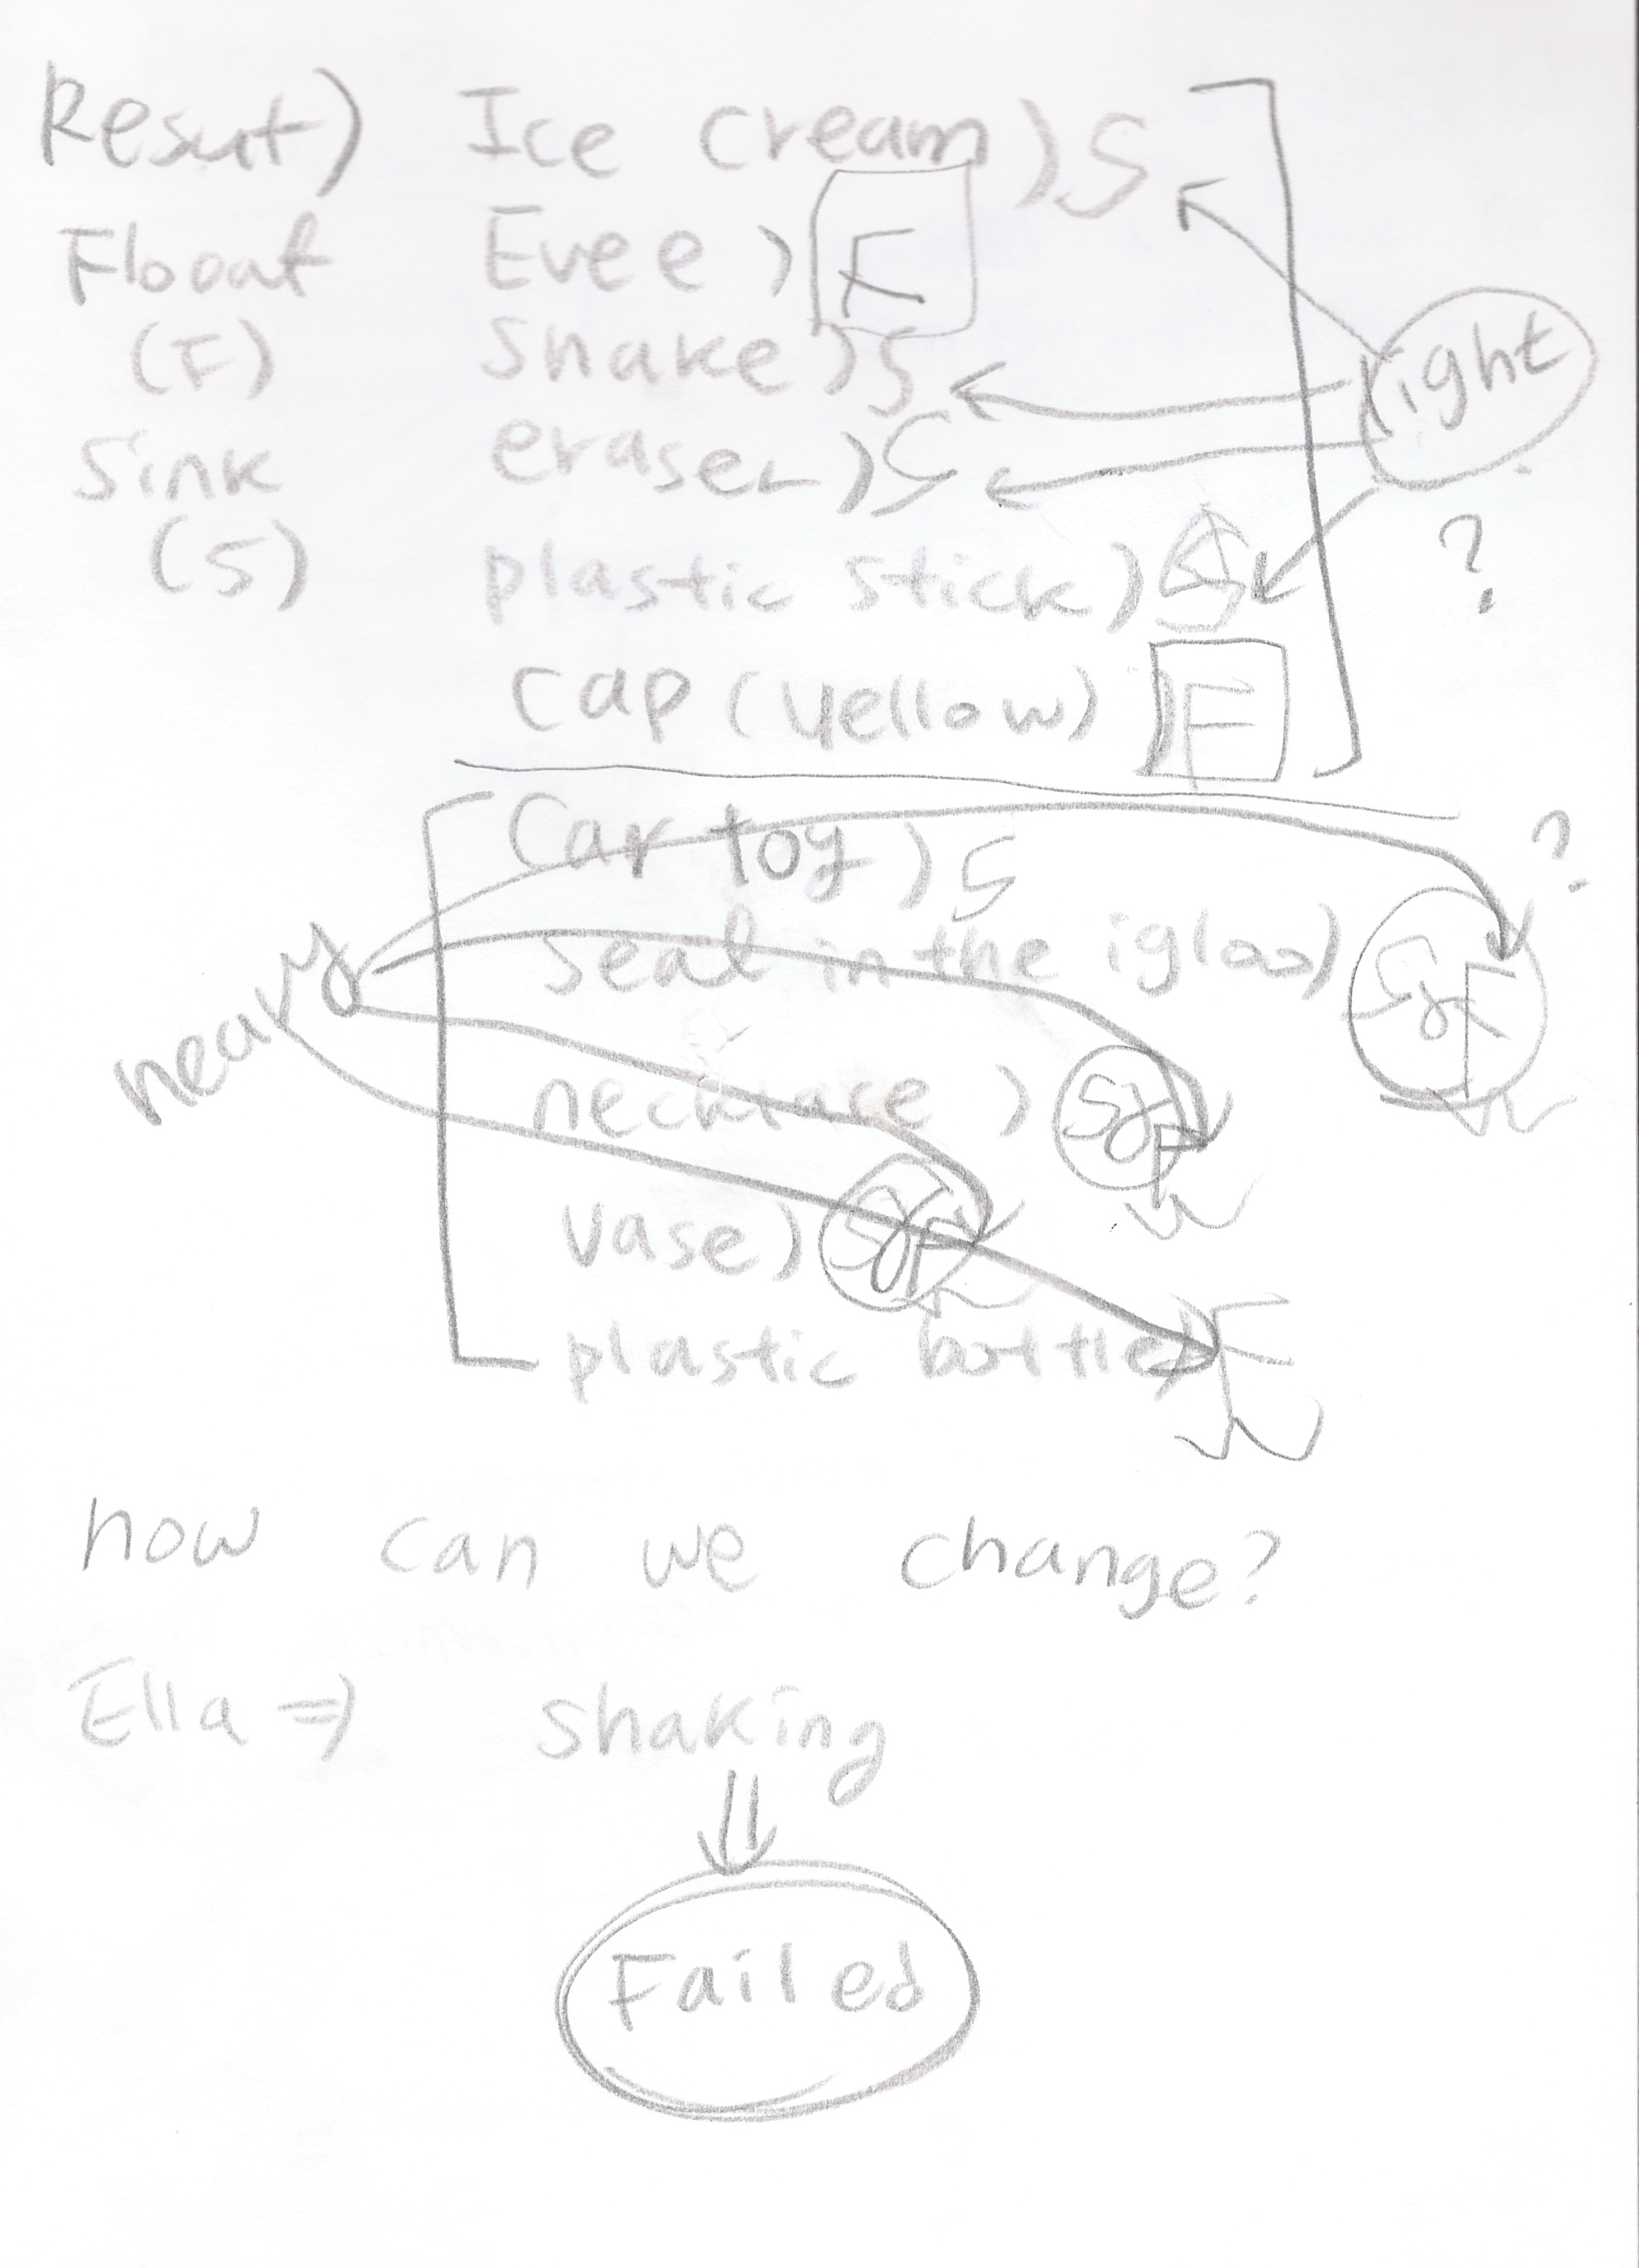 Resut) Ice cream) S
Flooat Evee) F
(F) snake) S
Sink eraser) S
(S) plastic stick) S
cap (yellow) F
light
?
Car toy) S
?
seat in the igloo) S&F
heavy
necklace) S&F
vase) S&F
plastic bottle) F
how can we change?
Ella ⇒ shaking
Failed